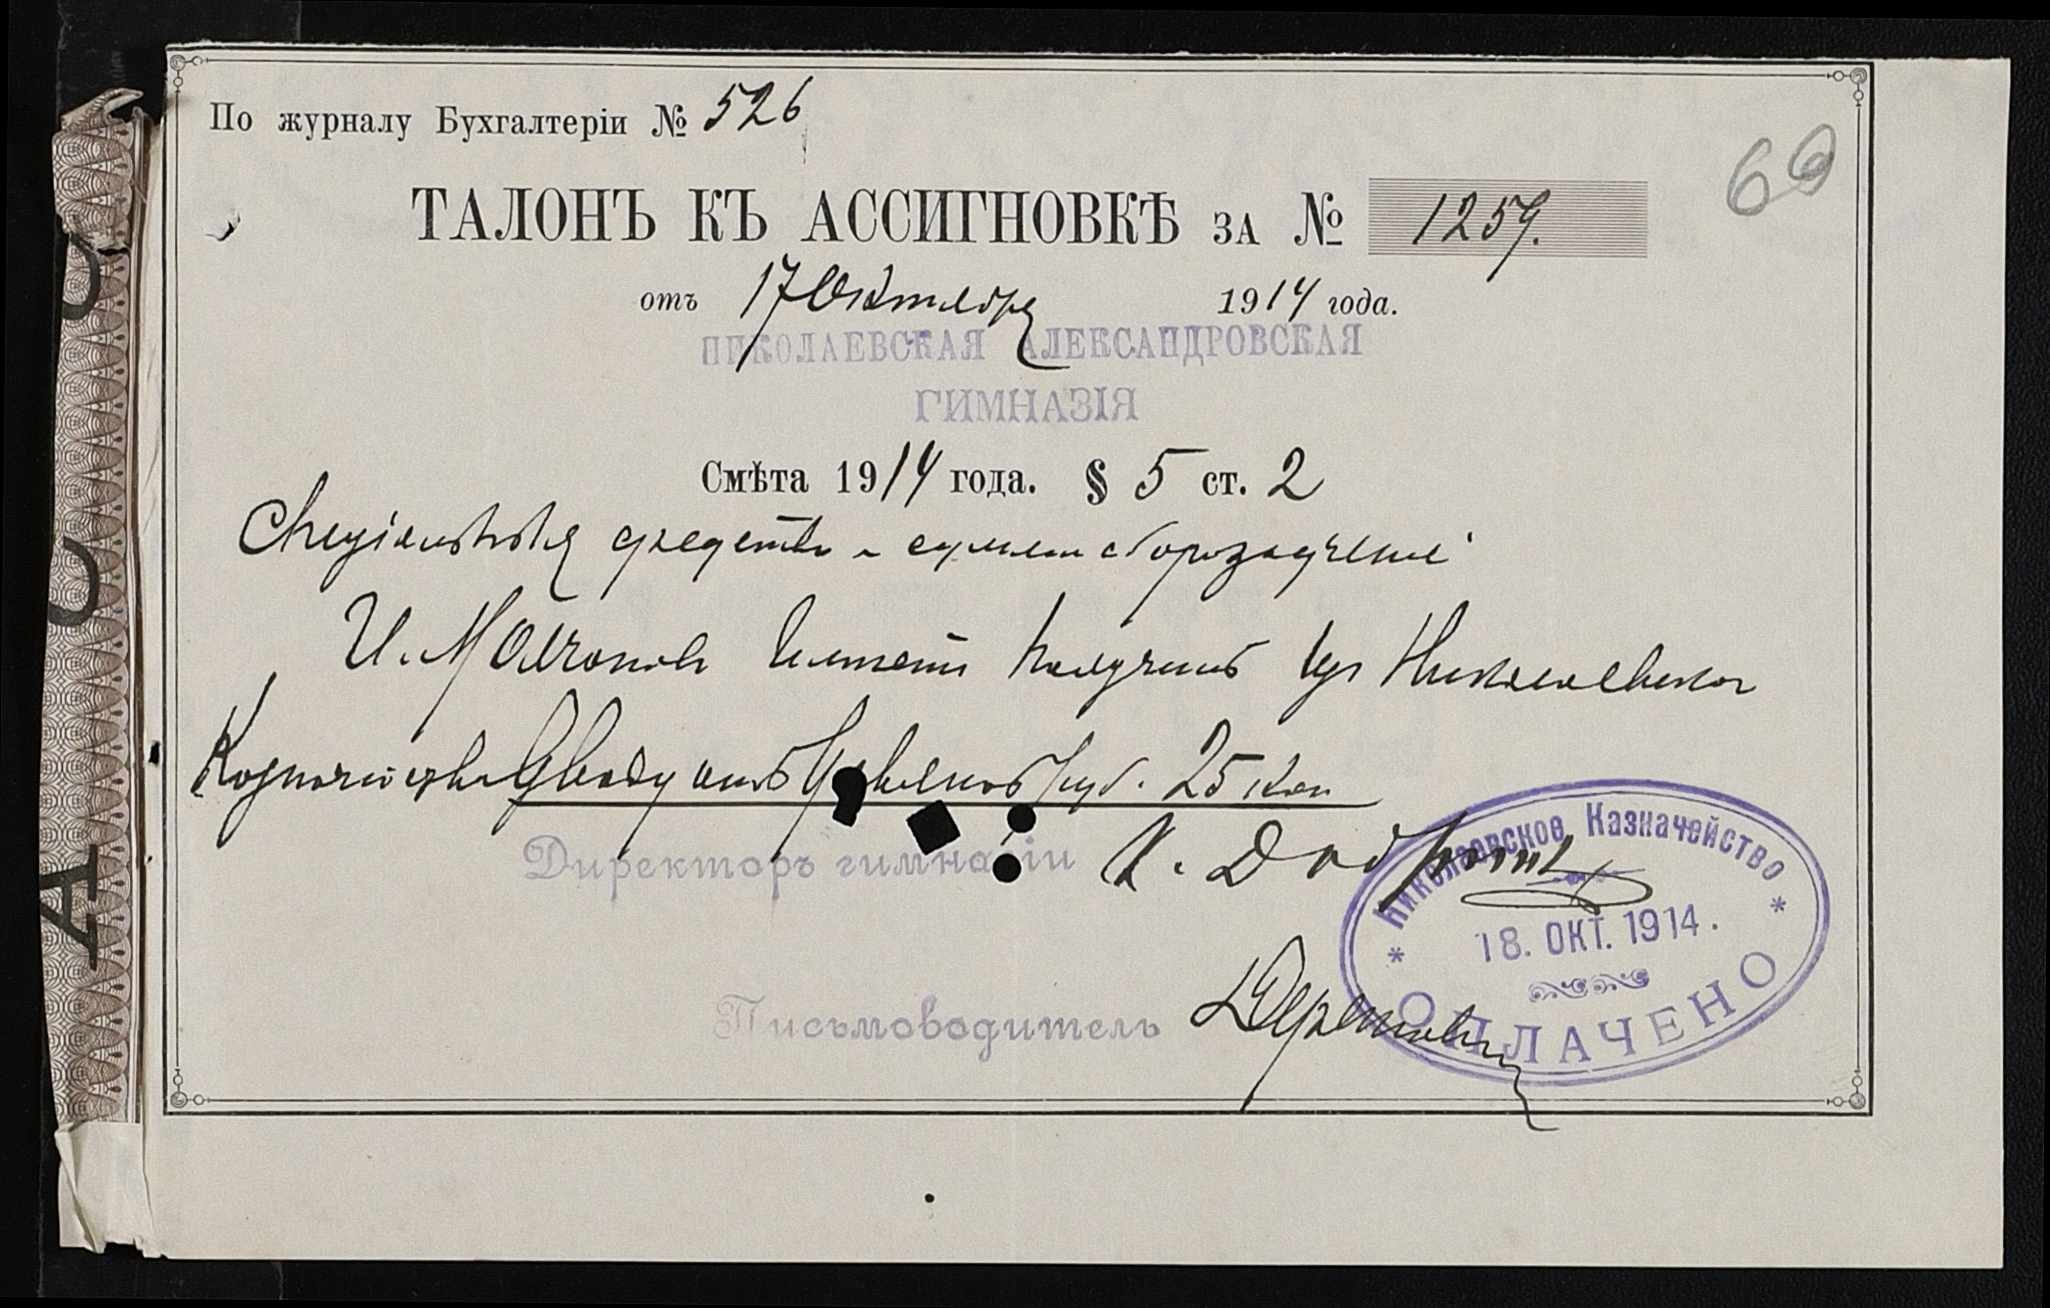 По журналу Бухгалтеріи № 526
60
ТАЛОНЪ КЪ АССИГНОВКѢ ЗА № 1259.
отъ 17 Октября 1914 года.
НИКОЛАЕВСКАЯ АЛЕКСАНДРОВСКАЯ
ГИМНАЗІЯ
Смѣта 1914 года. § 5 ст. 2
Спеціальныя средства и суммы сбора за ученіе
И. Молчановъ имѣетъ получить изъ Николаевскаго
Казначейства Двадцать девять руб. 25 коп
Директоръ гимназіи
Николаевское Казначейство
18. ОКТ. 1914.
ОПЛАЧЕНО
Письмоводитель